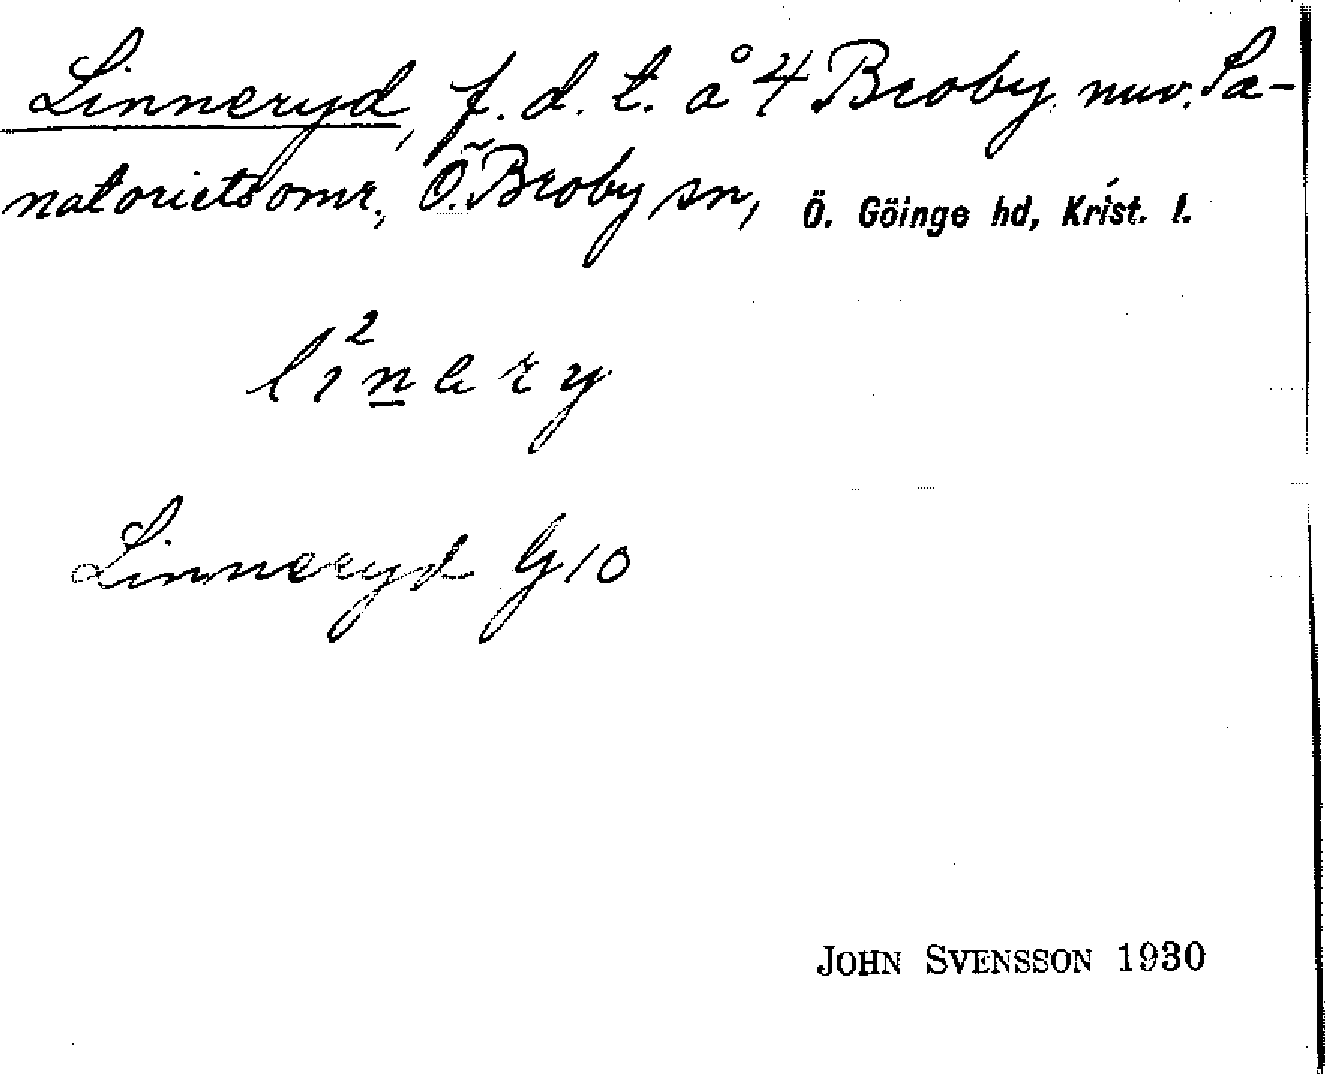 Linneryd, f. d. t. å 4 Broby, nuv. Sa-
natorietsomr., Ö. Broby sn, Ö. Göinge hd, Krist. l.
li²nery
Linneryd G10
JOHN SVENSSON 1930